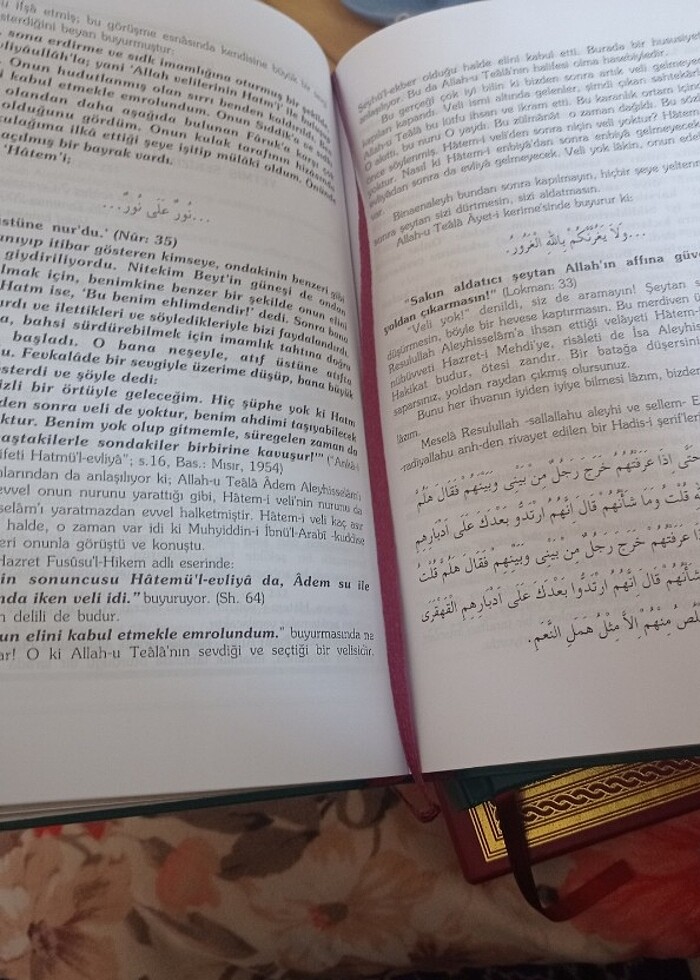 u ifşâ etmiş; bu görüşme esnâsında kendisine büyük bir
sterdiğini beyan buyurmuştur:
sona erdirme ve sıdk imamlığına oturmuş bir şekilde
vliyâullâh'la; yani 'Allah velilerinin Hatm'i' ile
Onun hudutlanmış olan sırrı benden kaldırıldı.
i kabul etmekle emrolundum. Onun Sıddîk'a
olandan daha aşağıda bulunan Fâruk'a karşı
olduğunu gördüm. Onun kulak tarafının hizâsında
ulağıma ilkâ ettiği şeye işitip mülâkî oldum. Önünde
açılmış bir bayrak vardı.
'Hâtem'i;
...نُورٌ عَلَى نُورٌ...
üstüne nur'du.' (Nûr: 35)
nıyıp itibar gösteren kimseye, ondakinin benzeri gibi
giydiriliyordu. Nitekim Beyt'in güneşi de ondan
lmak için, benimkine benzer bir şekilde onun elini
Hatm ise, 'Bu benim ehlimdendir!' dedi. Sonra bana
ırdı ve ilettikleri ve söyledikleriyle bizi faydalandırdı.
a, bahsi sürdürebilmek için imamlık tahtına doğru
başladı. O bana neşeyle, atıf üstüne atıfta
u. Fevkalâde bir sevgiyle üzerime düşüp, bana büyük
österdi ve şöyle dedi:
izli bir örtüyle geleceğim. Hiç şüphe yok ki Hatm
den sonra veli de yoktur, benim ahdimi taşıyabilecek
ktur. Benim yok olup gitmemle, süregelen zaman da
aştakilerle sondakiler birbirine kavuşur!'" ("Ankâ-i
ifeti Hatmü'l-evliyâ"; s.16, Bas.: Mısır, 1954)
alarından da anlaşılıyor ki; Allah-u Teâlâ Âdem Aleyhisselâm'ı
evvel onun nurunu yarattığı gibi, Hâtem-i veli'nin nurunu da
selâm'ı yaratmazdan evvel halketmiştir. Hâtem-i veli kaç asır
halde, o zaman var idi ki Muhyiddin-i İbnü'l-Arabî -kuddise
eri onunla görüştü ve konuştu.
Hazret Fusûsu'l-Hikem adlı eserinde:
in sonuncusu Hâtemü'l-evliyâ da, Âdem su ile
nda iken veli idi." buyuruyor. (Sh. 64)
n delili de budur.
un elini kabul etmekle emrolundum." buyurmasında ne
ar! O ki Allah-u Teâlâ'nın sevdiği ve seçtiği bir velisidir.
Şeyhü'l-ekber olduğu halde elini kabul etti. Burada bir hususiyet
anlaşılıyor. Bu da Allah-u Teâlâ'nın halifesi olma hasebiyledir.
Bu gerçeği çok iyi bilin ki bizden sonra artık veli gelmeyecek
kapıları kapandı. Veli ismi altında gelenler, şimdi çıkan sahtekâr
Allah-u Teâlâ bu lütfu ihsan ve ikram etti. Bu karanlık ortam içinde
O akıttı, bu nuru O yaydı. Bu zülmânât o zaman dağıldı. Bu sözü
önce söylenmiş. Hâtem-i veli'den sonra niçin veli yoktur? Hâtem-
yoktur. Nasıl ki Hâtem-i enbiyâ'dan sonra enbiyâ gelmeyecek,
evliyâdan sonra da evliyâ gelmeyecek. Veli yok lâkin, onun ede
var.
Binaenaleyh bundan sonra kapılmayın, hiçbir şeye yeltenm
sonra şeytan sizi dürtmesin, sizi aldatmasın.
Allah-u Teâlâ Âyet-i kerime'sinde buyurur ki:
...وَلَا يَغُرَّنَّكُمْ بِاللّٰهِ الْغَرُورُ.
"Sakın aldatıcı şeytan Allah'ın affına güve
yoldan çıkarmasın!" (Lokman: 33)
"Veli yok!" denildi, siz de aramayın! Şeytan s
düşürmesin, böyle bir hevese kaptırmasın. Bu merdiven
Resulullah Aleyhisselâm'a ihsan ettiği velâyeti Hâtem-
nübüvveti Hazret-i Mehdi'ye, risâleti de İsa Aleyhis
Hakikat budur, ötesi zandır. Bir batağa düşersini
saparsınız, yoldan raydan çıkmış olursunuz.
Bunu her ihvanın iyiden iyiye bilmesi lâzım, bizden
lâzım.
Meselâ Resulullah -sallallahu aleyhi ve sellem- E
-radiyallahu anh-den rivayet edilen bir Hadis-i şerif'leri
حَتّٰى اِذَا عَرَفْتُهُمْ خَرَجَ رَجُلٌ مِنْ بَيْنِى وَبَيْنَهُمْ فَقَالَ هَلُمَّ
قُلْتُ وَمَا شَأْنُهُمْ قَالَ اِنَّهُمُ ارْتَدُّو بَعْدَكَ عَلَى اَدْبَارِهِمُ
ا عَرَفْتُهُمْ خَرَجَ رَجُلٌ مِنْ بَيْنِى وَبَيْنِهِمْ فَقَالَ هَلُمَّ قُلْتُ
شَأْنُهُمْ قَالَ اِنَّهُمُ ارْتَدُّوا بَعْدَكَ عَلَى اَدْبَارِهِمِ الْقَهْقَرٰى
لُصُ مِنْهُمْ اِلاَّ مِثْلُ هَمَلِ النَّعَمِ.